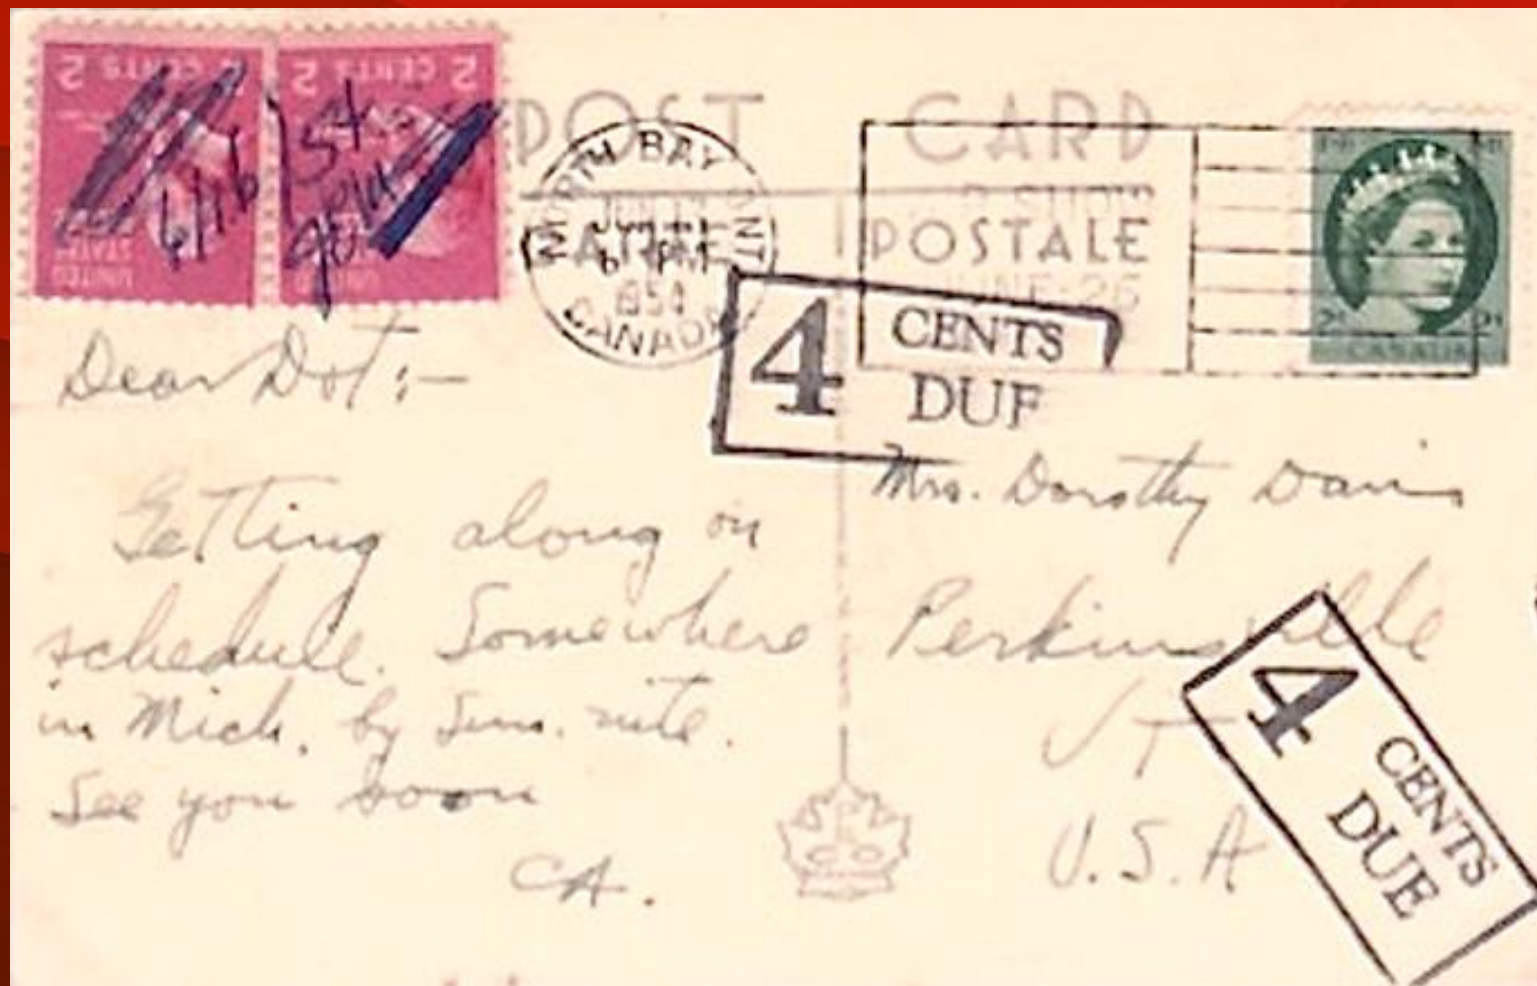 2 CENTS 2
UNITED
STATES
2 CENTS 2
UNITED
6/16
POST CARD
POSTALE
NORTH BAY ONT
PM
1954
CANADA
CANADA
4 CENTS
DUE
Dear Dot:—
Getting along on
schedule. Somewhere
in Mich. by Sun. nite.
See you soon
CA.
Mrs. Dorothy Davis
Perkinsville
VT
U.S.A
4 CENTS
DUE